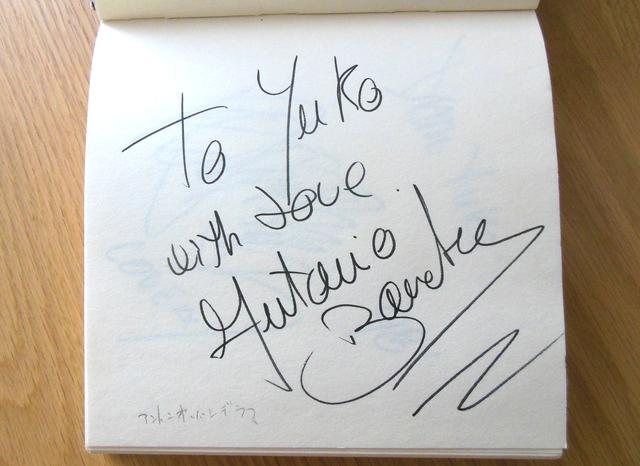 To Yuko
with Love.
Antonio
Banderas
アントニオ・バンデラス